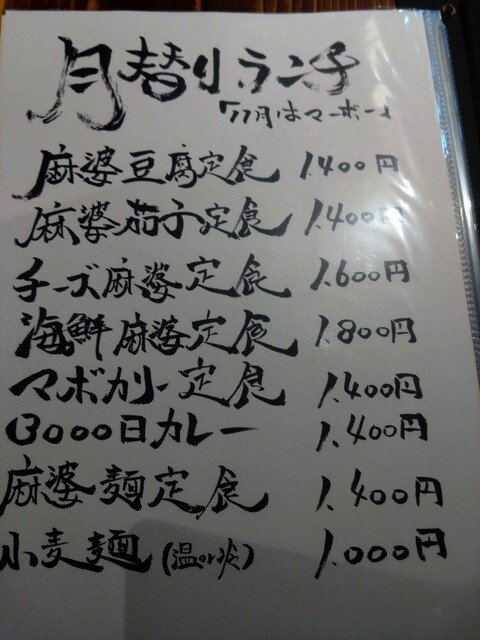 月替りランチ
11月はマーボー
麻婆豆腐定食 1.400円
麻婆茄子定食 1.400円
チーズ麻婆定食 1.600円
海鮮麻婆定食 1.800円
マボカリー定食 1.400円
13000日カレー 1.400円
麻婆麺定食 1.400円
小麦麺(温or冷) 1.000円